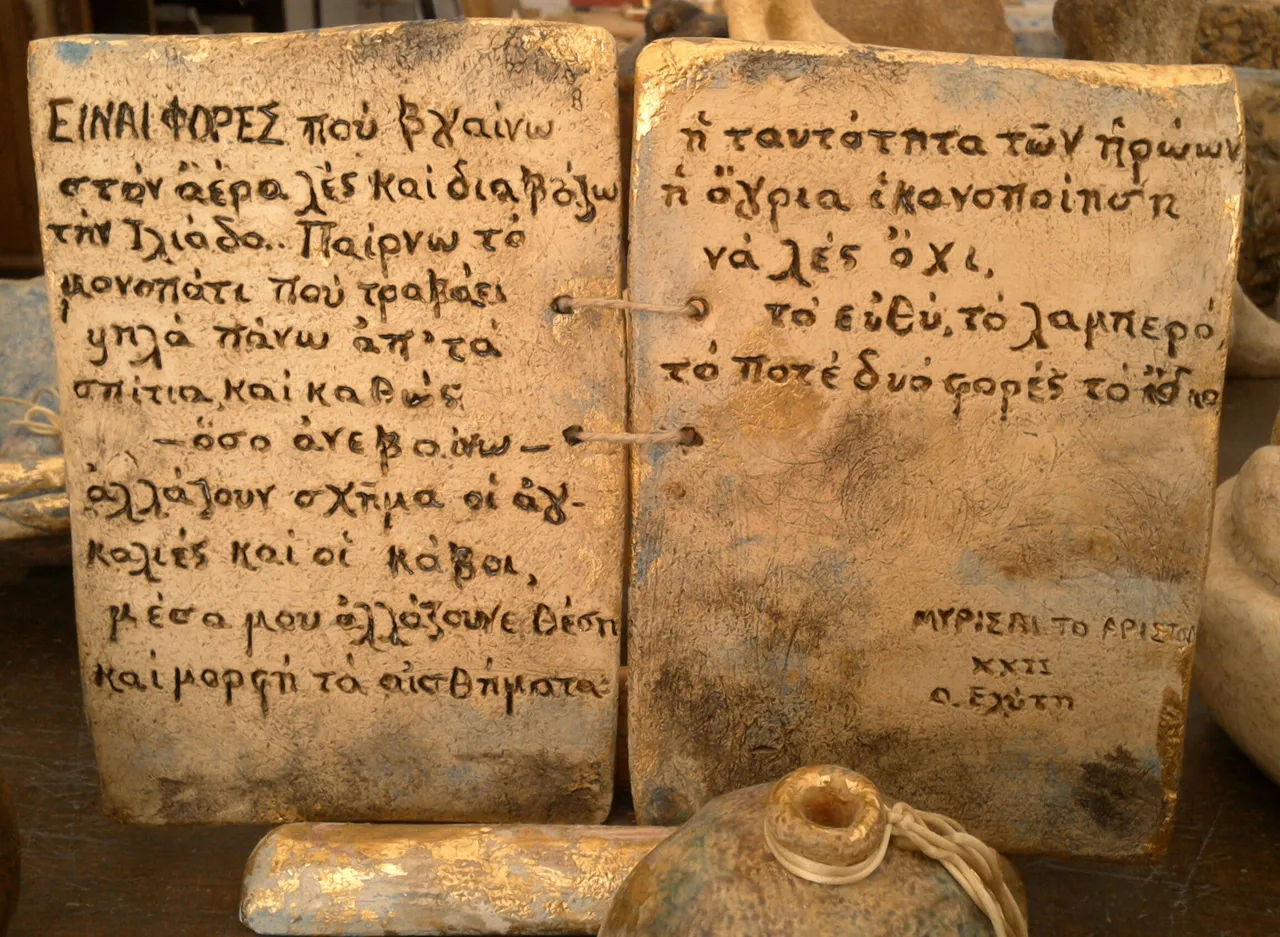 ΕΙΝΑΙ ΦΟΡΕΣ πού βγαίνω
στόν ἀέρα λές καί διαβάζω
τήν Ἰλιάδα.. Παίρνω τό
μονοπάτι πού τραβάει
ψηλά πάνω ἀπ' τά
σπίτια, καί καθώς
— ὅσο ἀνεβαίνω —
ἀλλάζουν σχῆμα οἱ ἀγ-
καλιές καί οἱ κάβοι,
μέσα μου ἀλλάζουνε θέση
καί μορφή τά αἰσθήματα:
ἡ ταυτότητα τῶν ἡρώων
ἡ ἄγρια ἱκανοποίηση
νά λές ὄχι,
τό εὐθύ, τό λαμπερό,
τό ποτέ δυό φορές τό ἴδιο
ΜΥΡΙΣΑΙ ΤΟ ΑΡΙΣΤΟΝ
XXII
Ο. Ελύτη